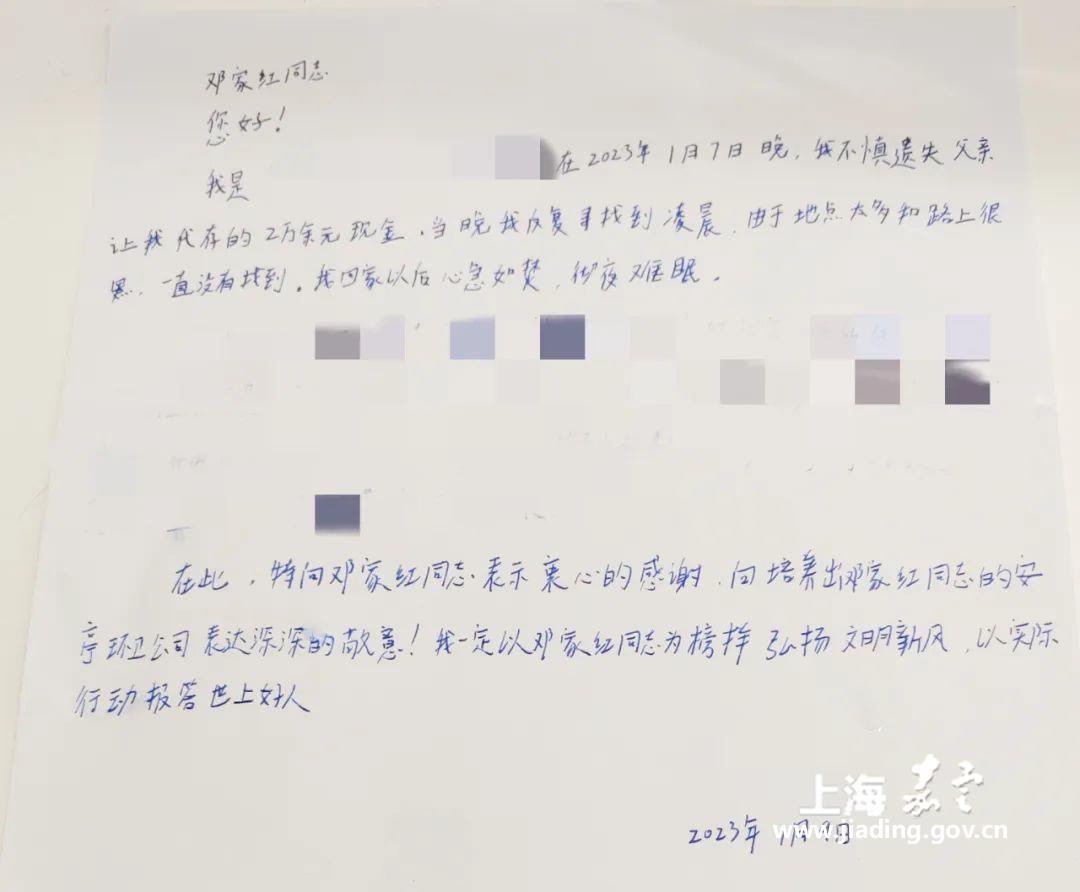 邓家红同志
您好！
我是
在2023年1月7日晚，我不慎遗失父亲
让我代存的2万余元现金，当晚我反复寻找到凌晨，由于地点太多和路上很
黑，一直没有找到。我回家以后心急如焚，彻夜难眠。
在此，特向邓家红同志表示衷心的感谢，向培养出邓家红同志的安
亭环卫公司表达深深的敬意！我一定以邓家红同志为榜样弘扬文明新风，以实际
行动报答世上好人
2023年1月 日
上海嘉定
www.jiading.gov.cn